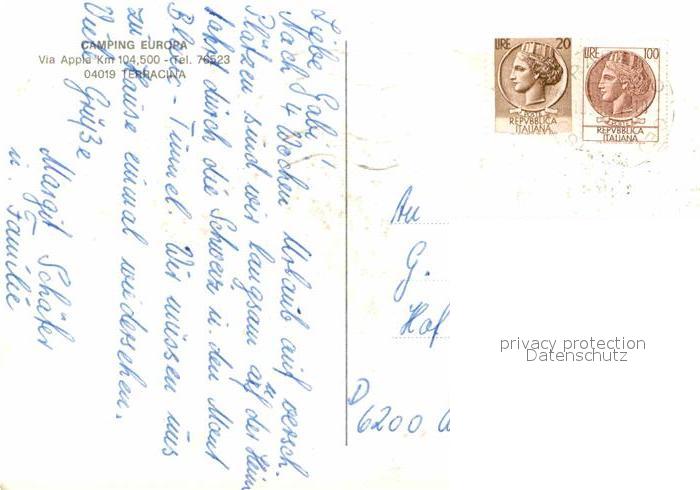 CAMPING EUROPA
Via Appia Km 104,500 - Tel. 76523
04019 TERRACINA
Liebe Gabi!
Nach 4 Wochen Urlaub auf versch.
Plätzen sind wir langsam auf der Heim
fahrt durch die Schweiz u. den Mont
Blanc-Tunnel. Wir müssen uns
zu Hause einmal wiedersehen.
Viele Grüße
Margit Schäfer
u. Familie
LIRE 20
POSTE
REPVBBLICA
ITALIANA
LIRE 100
POSTE
REPVBBLICA
ITALIANA
An
G.
Hof
D
6200
privacy protection
Datenschutz